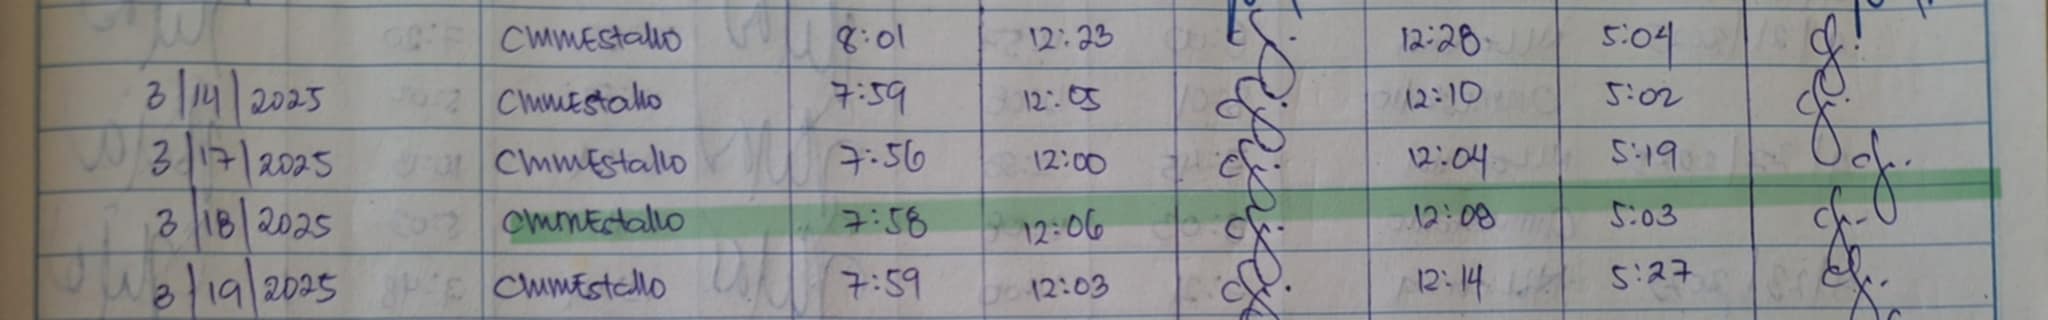 CMMEstallo 8:01 12:23 12:28 5:04
3/14/2025 CMMEstallo 7:59 12:05 12:10 5:02
3/17/2025 CMMEstallo 7:56 12:00 12:04 5:19
3/18/2025 CMMEstallo 7:58 12:06 12:08 5:03
3/19/2025 CMMEstallo 7:59 12:03 12:14 5:27